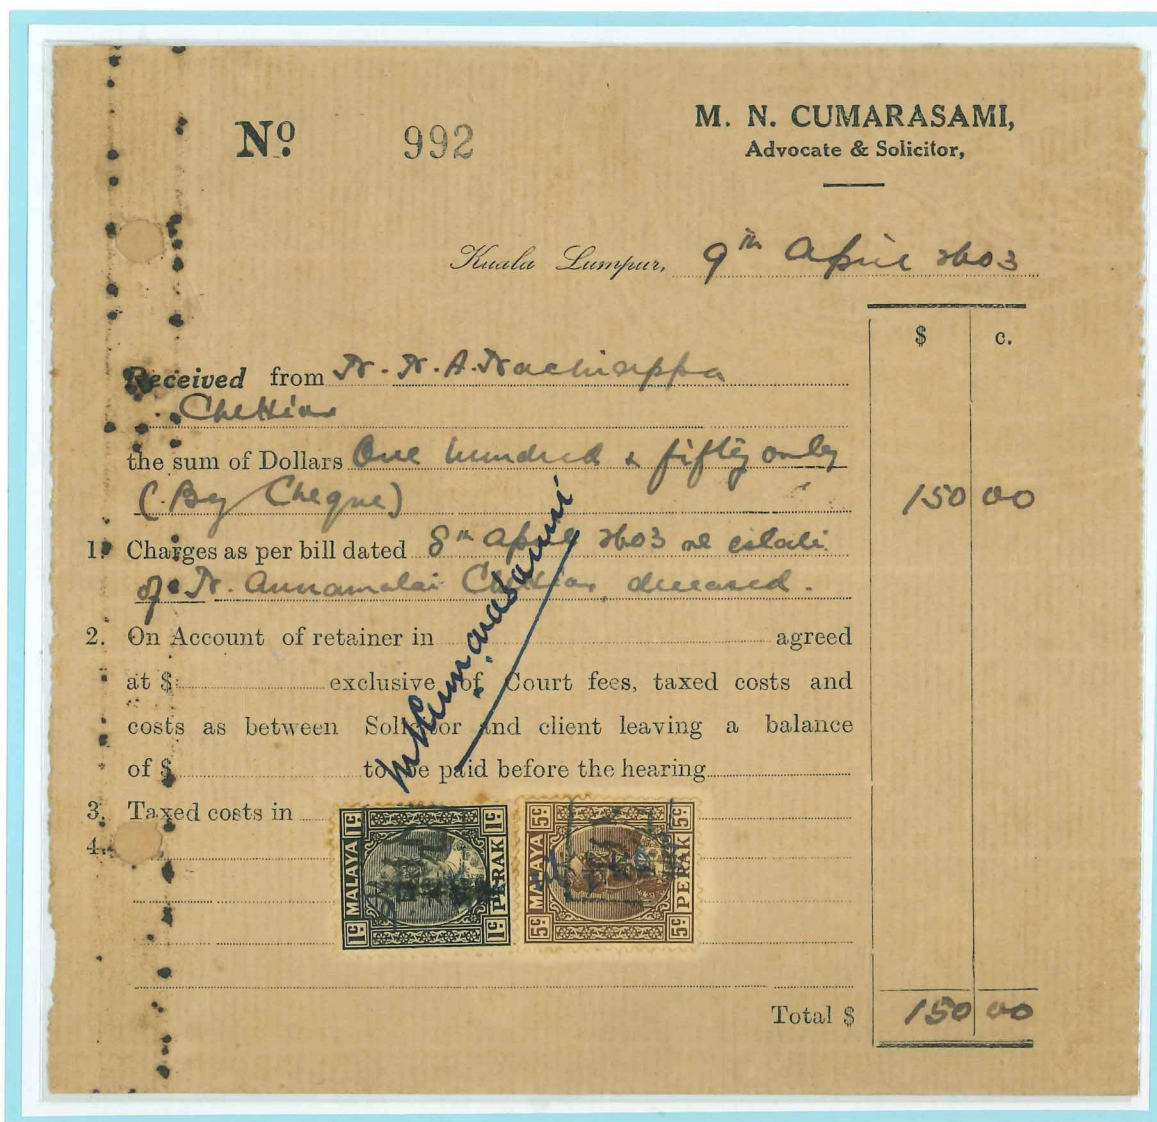 Nº 992
M. N. CUMARASAMI,
Advocate & Solicitor,
Kuala Lumpur, 9th April 2603
$ c.
Received from N. N. A. Nachiappa
Chettiar
the sum of Dollars One hundred & fifty only
(By Cheque) 150 00
1. Charges as per bill dated 8th April 2603 re estate
of N. Annamalai Chettiar, deceased.
2. On Account of retainer in agreed
at $ exclusive of Court fees, taxed costs and
costs as between Solicitor and client leaving a balance
of $ to be paid before the hearing
M N Cumarasami
3. Taxed costs in
4.
1c MALAYA 1c
1c PERAK 1c
5c MALAYA 5c
5c PERAK 5c
Total $ 150 00